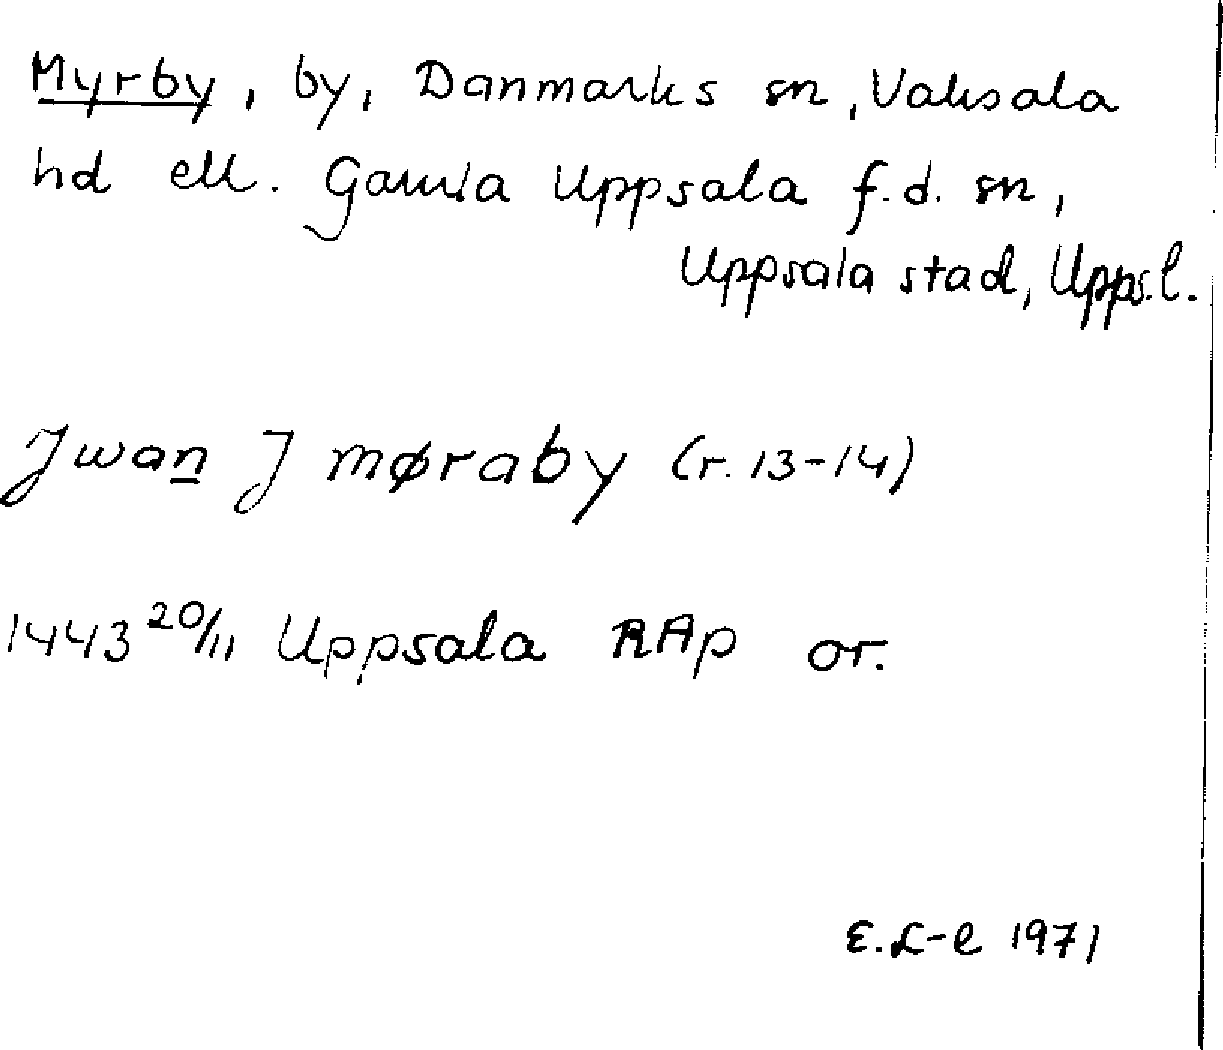 Myrby, by, Danmarks sn, Vaksala
hd ell. Gamla Uppsala f.d. sn,
Uppsala stad, Uppsl.
Jwan J møraby (r. 13-14)
1443 20/11 Uppsala RAp or.
E.L-e 1971